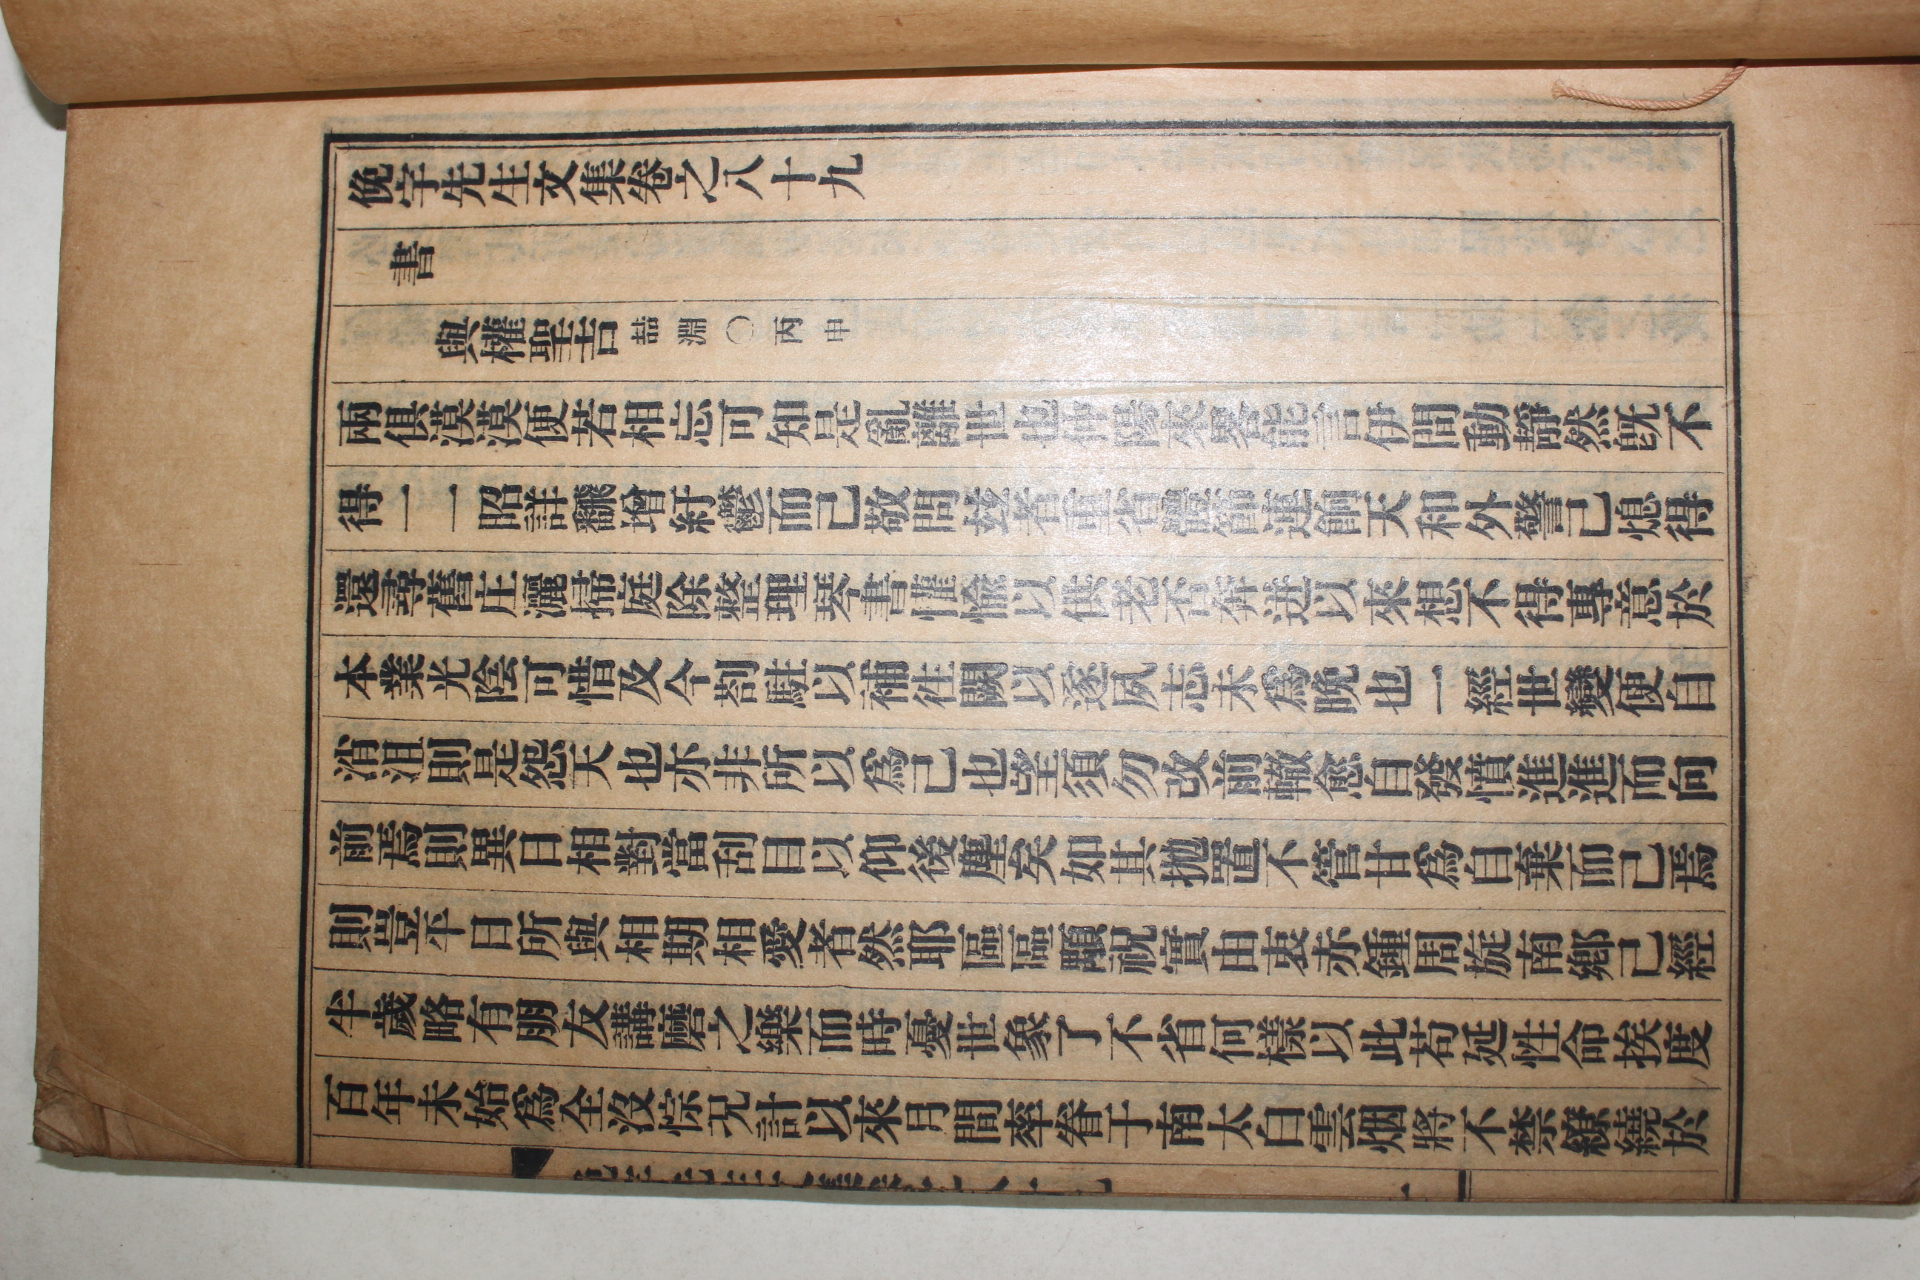 俛宇先生文集卷之八十九
書
與權聖吉 喆淵 ○丙申
兩俱漠漠便若相忘可知是亂離世也仲隱來畧能言伊間動靜然旣不
得一一昭詳翻增紆鬱而已敬問玆者重省體節連餉天和外警已熄得
還尋舊庄灑掃庭除整理琴書懽愉以供老否奔迸以來想不得專意於
本業光陰可惜及今剳駐以補往闕以遂夙志未爲晩也一經世變便自
消沮則是怨天也亦非所以爲己也望須勿改前轍愈自發憤進進而向
前焉則異日相對當刮目以仰後塵矣如其抛置不管甘爲自棄而已焉
則豈平日所與相期相愛者然耶區區顒祝實由衷赤鍾周旋南鄕已經
半歲略有朋友講磨之樂而時憂世象了不省何樣以此苟延性命挨度
百年未始爲全沒悰况計以來月間率眷于南太白雲烟將不禁繚繞於